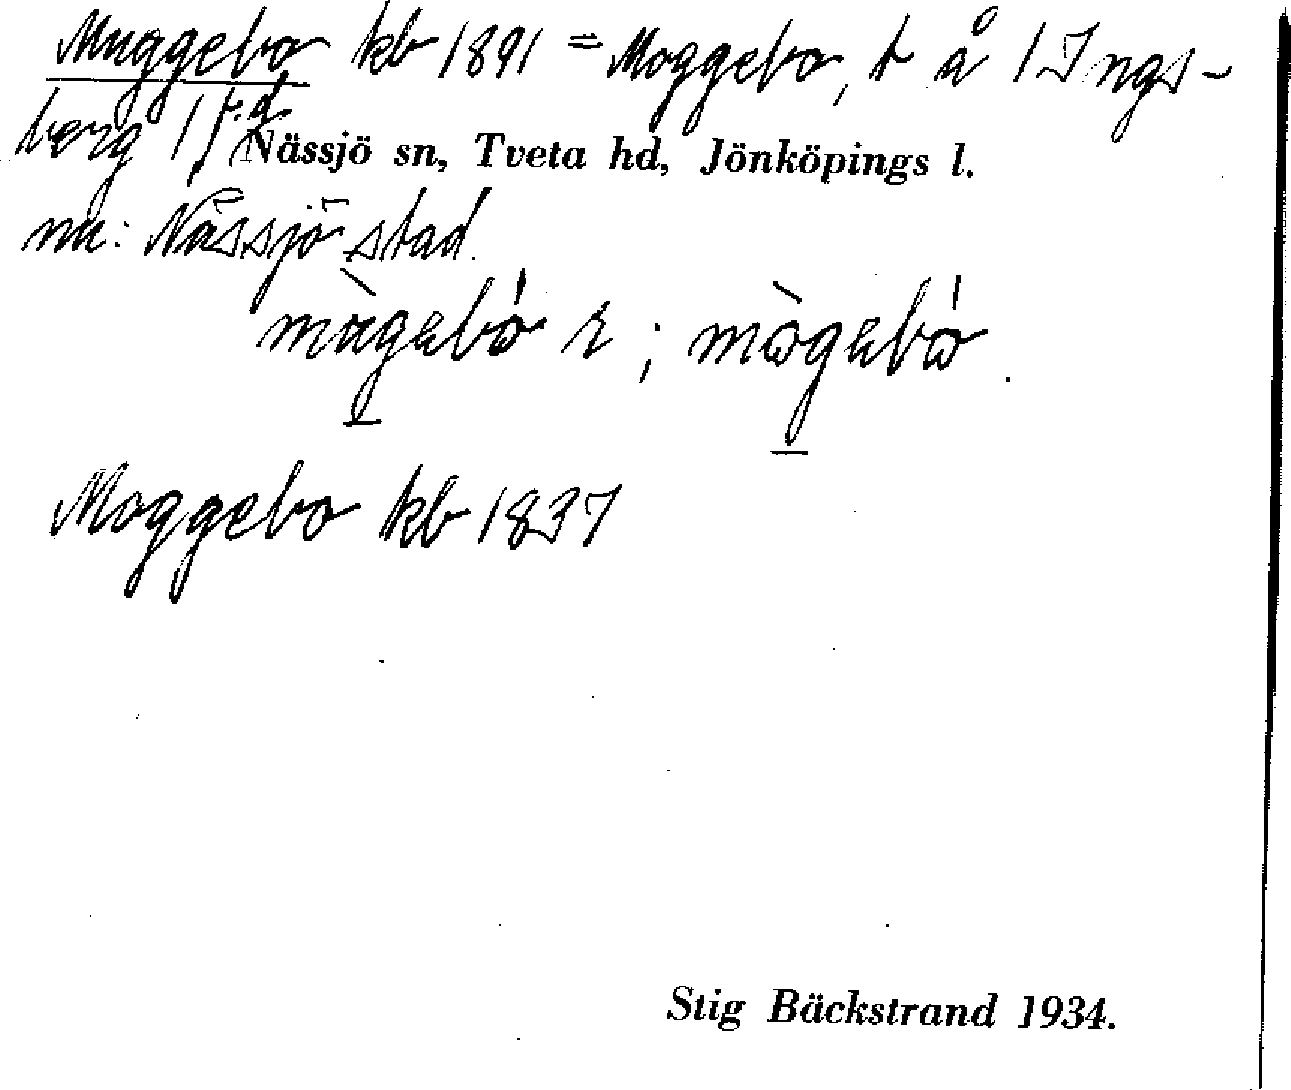 Muggebo kb 1891 = Moggebo, t å / Ings-
berg / f.d.
Nässjö sn, Tveta hd, Jönköpings l.
nu: Nässjö stad.
Moggebo kb 1837
Stig Bäckstrand 1934.